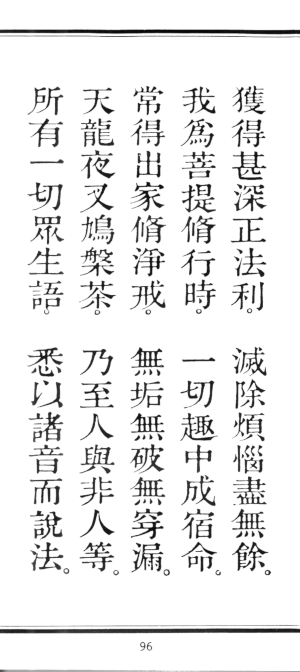 獲得甚深正法利。滅除煩惱盡無餘。
我為菩提脩行時。一切趣中成宿命。
常得出家脩淨戒。無垢無破無穿漏。
天龍夜叉鳩槃茶。乃至人與非人等。
所有一切眾生語。悉以諸音而說法。
96